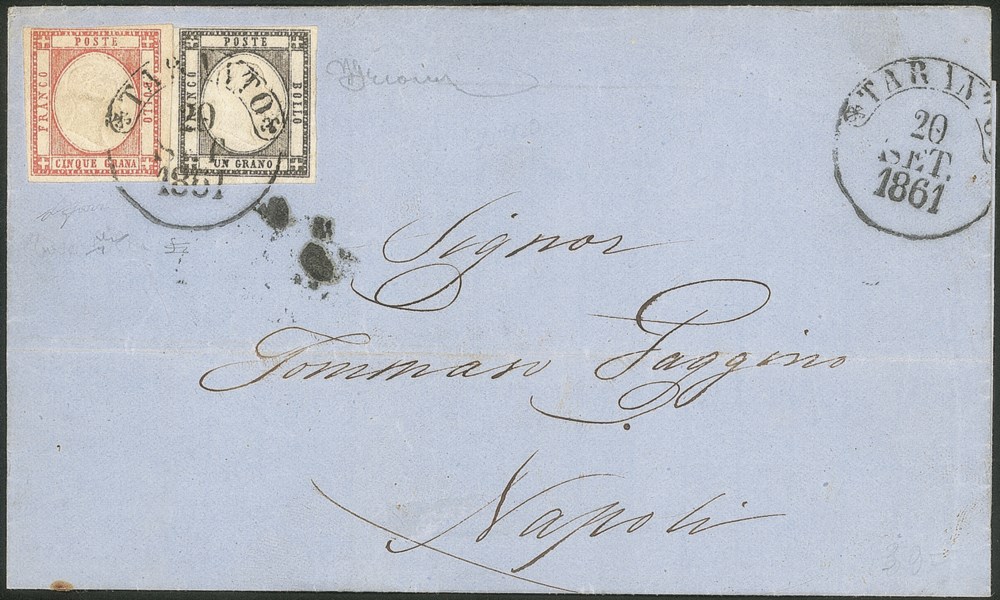 POSTE
FRANCO
BOLLO
CINQUE GRANA
POSTE
FRANCO
BOLLO
UN GRANO
TARANTO
20
SET.
1861
TARANTO
20
SET.
1861
Signor
Tommaso Faggino
Napoli
30